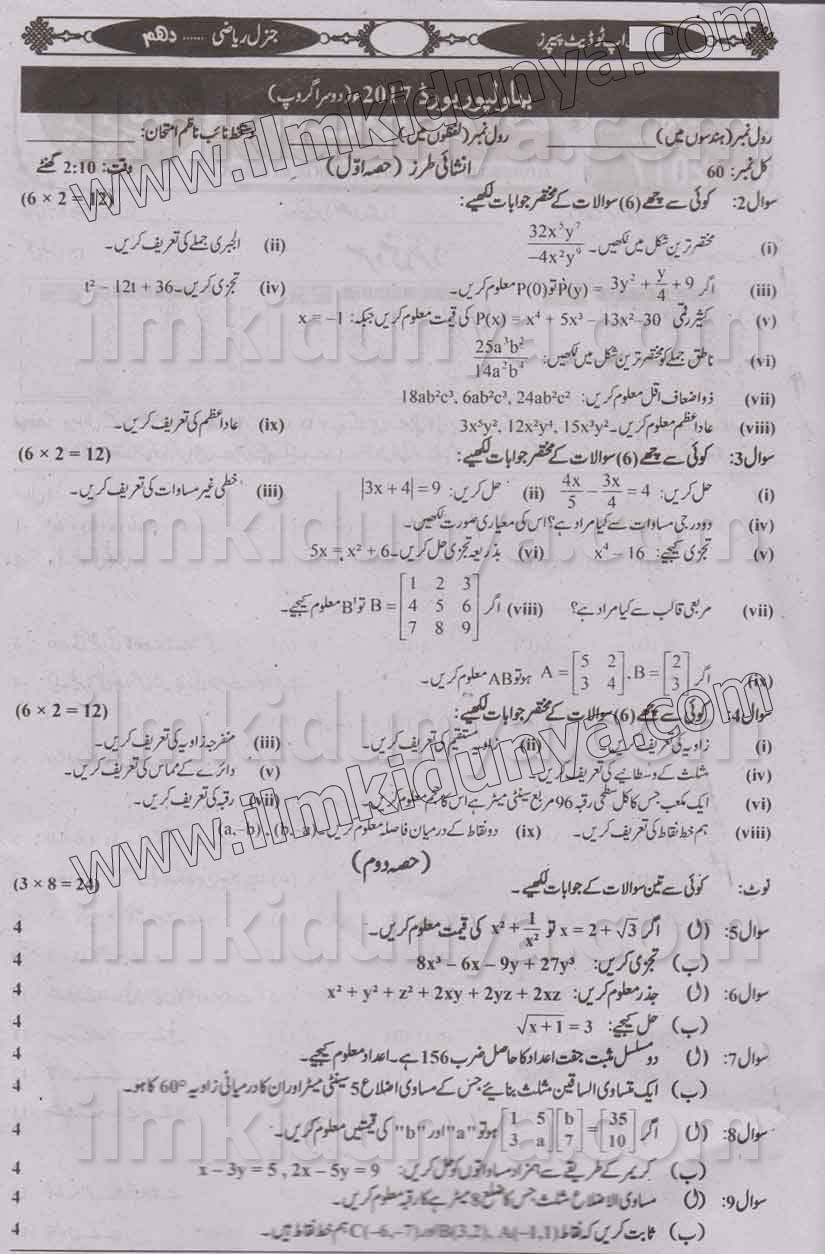 جنرل ریاضی ...... دھم
اپ ٹو ڈیٹ پیپرز
بہاولپور بورڈ 2017ء (دوسرا گروپ)
رول نمبر (ہندسوں میں) رول نمبر (لفظوں میں) دستخط نائب ناظم امتحان:
کل نمبر: 60 انشائی طرز (حصہ اوّل) وقت: 2:10 گھنٹے
سوال2: کوئی سے چھے (6) سوالات کے مختصر جوابات لکھیے: (6 × 2 = 12)
(i) مختصر ترین شکل میں لکھیں۔ 32x⁵y⁷ / −4x²y⁹ (ii) الجبری جملے کی تعریف کریں۔
(iii) اگر P(y) = 3y² + y/4 + 9 تو P(0) معلوم کریں۔ (iv) تجزی کریں۔ t² − 12t + 36
(v) کثیر رقمی P(x) = x⁴ + 5x³ − 13x² − 30 کی قیمت معلوم کریں جبکہ: x = −1
(vi) ناطق جملے کو مختصر ترین شکل میں لکھیں: 25a³b² / 14a²b⁴
(vii) ذواضعاف اقل معلوم کریں: 18ab²c³, 6ab²c³, 24ab²c²
(viii) عاداعظم معلوم کریں۔ 3x⁵y², 12x²y⁴, 15x³y² (ix) عاداعظم کی تعریف کریں۔
سوال3: کوئی سے چھے (6) سوالات کے مختصر جوابات لکھیے: (6 × 2 = 12)
(i) حل کریں: 4x/5 − 3x/4 = 4 (ii) حل کریں: |3x + 4| = 9 (iii) خطی غیر مساوات کی تعریف کریں۔
(iv) دو درجی مساوات سے کیا مراد ہے؟ اس کی معیاری صورت لکھیں۔
(v) تجزی کیجیے: x⁴ − 16 (vi) بذریعہ تجزی حل کریں۔ 5x = x² + 6
(vii) مربعی قالب سے کیا مراد ہے؟ (viii) اگر B = [1 2 3; 4 5 6; 7 8 9] تو Bᵗ معلوم کیجیے۔
(ix) اگر A = [5 2; 3 4], B = [2; 3] ہو تو AB معلوم کریں۔
سوال4: کوئی سے چھے (6) سوالات کے مختصر جوابات لکھیے: (6 × 2 = 12)
(i) زاویہ کی تعریف کریں۔ (ii) زاویہ مستقیم کی تعریف کریں۔ (iii) منفرجہ زاویہ کی تعریف کریں۔
(iv) مثلث کے وسطانیے کی تعریف کریں۔ (v) دائرے کے مماس کی تعریف کریں۔
(vi) ایک مکعب جس کا کل سطحی رقبہ 96 مربع سینٹی میٹر ہے اس کا حجم معلوم کریں۔ (vii) رقبہ کی تعریف کریں۔
(viii) ہم خط نقاط کی تعریف کریں۔ (ix) دو نقاط کے درمیان فاصلہ معلوم کریں۔ (a, −b), (b, −a)
(حصہ دوم)
نوٹ: کوئی سے تین سوالات کے جوابات لکھیے۔ (3 × 8 = 24)
سوال5: (ل) اگر x = 2 + √3 تو x² + 1/x² کی قیمت معلوم کریں۔ 4
(ب) تجزی کریں: 8x³ − 6x − 9y + 27y³ 4
سوال6: (ل) جذر معلوم کریں: x² + y² + z² + 2xy + 2yz + 2xz 4
(ب) حل کیجیے: √x + 1 = 3 4
سوال7: (ل) دو مسلسل مثبت جفت اعداد کا حاصل ضرب 156 ہے۔ اعداد معلوم کیجیے۔ 4
(ب) ایک متساوی الساقین مثلث بنائیے جس کے مساوی اضلاع 5 سینٹی میٹر اور ان کا درمیانی زاویہ 60° کا ہو۔ 4
سوال8: (ل) اگر [1 5; 3 a][b; 7] = [35; 10] ہو تو "a" اور "b" کی قیمتیں معلوم کریں۔ 4
(ب) کریمر کے طریقے سے ہمزاد مساواتوں کو حل کریں: x − 3y = 5 , 2x − 5y = 9 4
سوال9: (ل) مساوی الاضلاع مثلث جس کا ضلع 8 میٹر ہے کا رقبہ معلوم کریں۔ 4
(ب) ثابت کریں کہ نقاط A(−1,1) ,B(3,2) اور C(−6,−7) ہم خط نقاط ہیں۔ 4
www.ilmkidunya.com
www.ilmkidunya.com
ilmkidunya.com
ilmkidunya.com
ilmkidunya.com
ilmkidunya.com
ilmkidunya.com
ilmkidunya.com